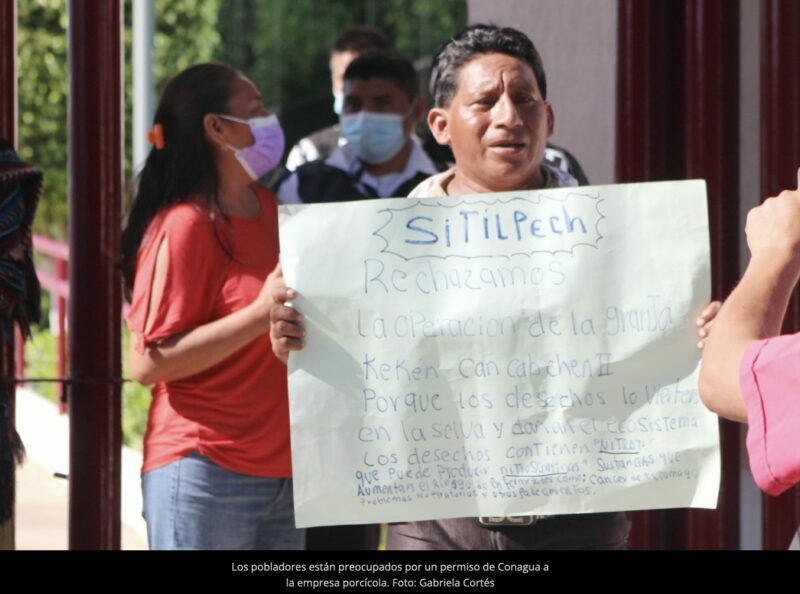 SITILPECH
Rechazamos
La operacion de la granja
KeKen Can Cabchen II
Porque los desechos lo vierten
en la selva y dañan el ecosistema
Los desechos contienen "NITRATO
que puede producir nitrosaminas" Sustancias que
Aumentan el Riesgo de como: Cancer de
Problemas respiratorios y otros padecimientos.
Los pobladores están preocupados por un permiso de Conagua a
la empresa porcícola. Foto: Gabriela Cortés